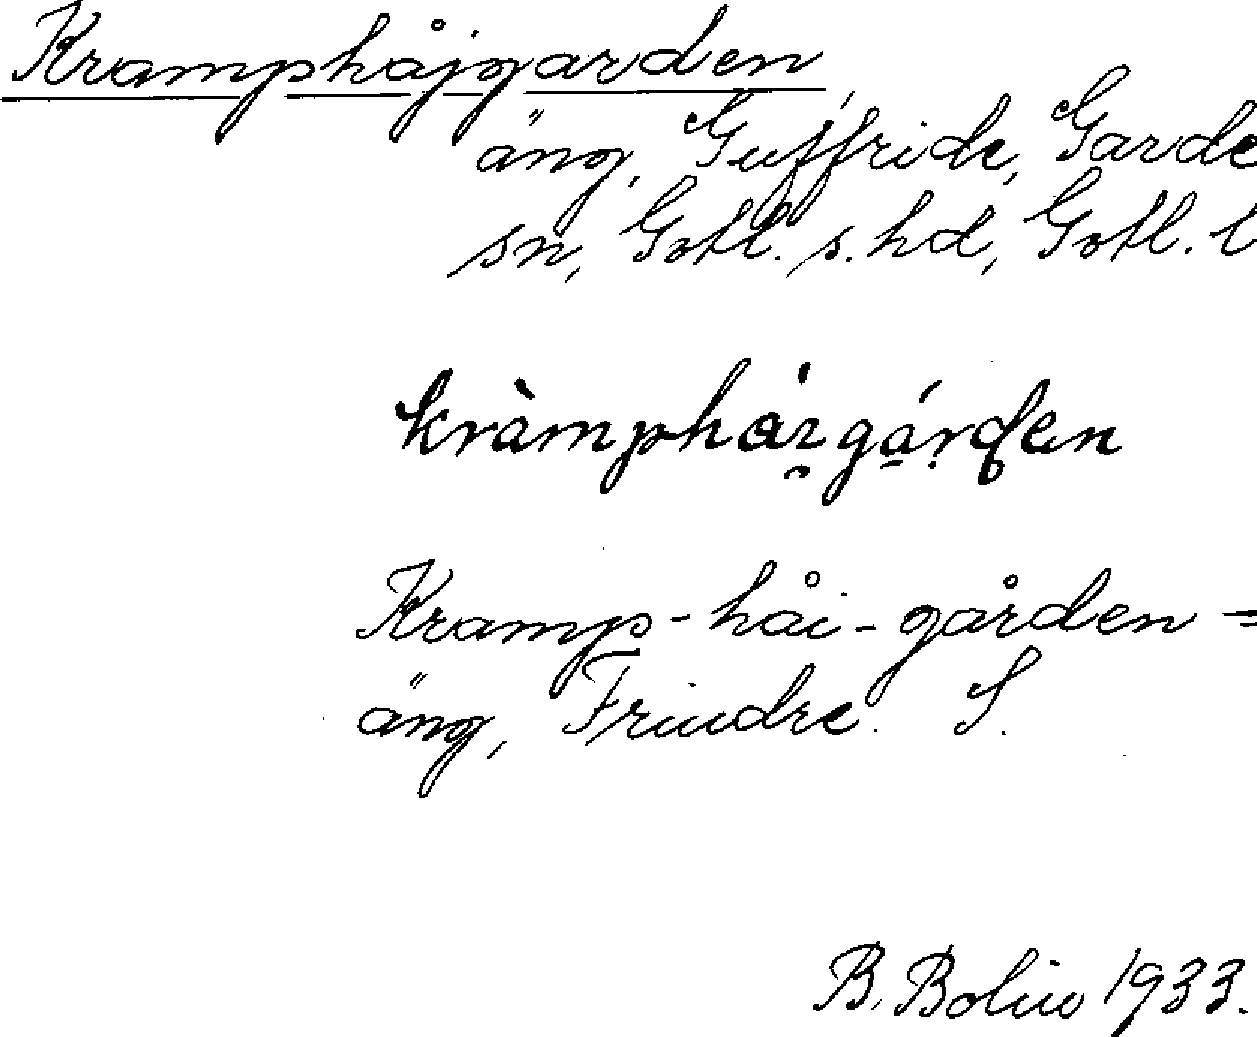 Kramphåjgarden
äng, Guffride, Garde
sn, Gotl. s. hd, Gotl. l
Kramp-håi-gården =
äng, Frindre. S.
B. Bolin 1933.